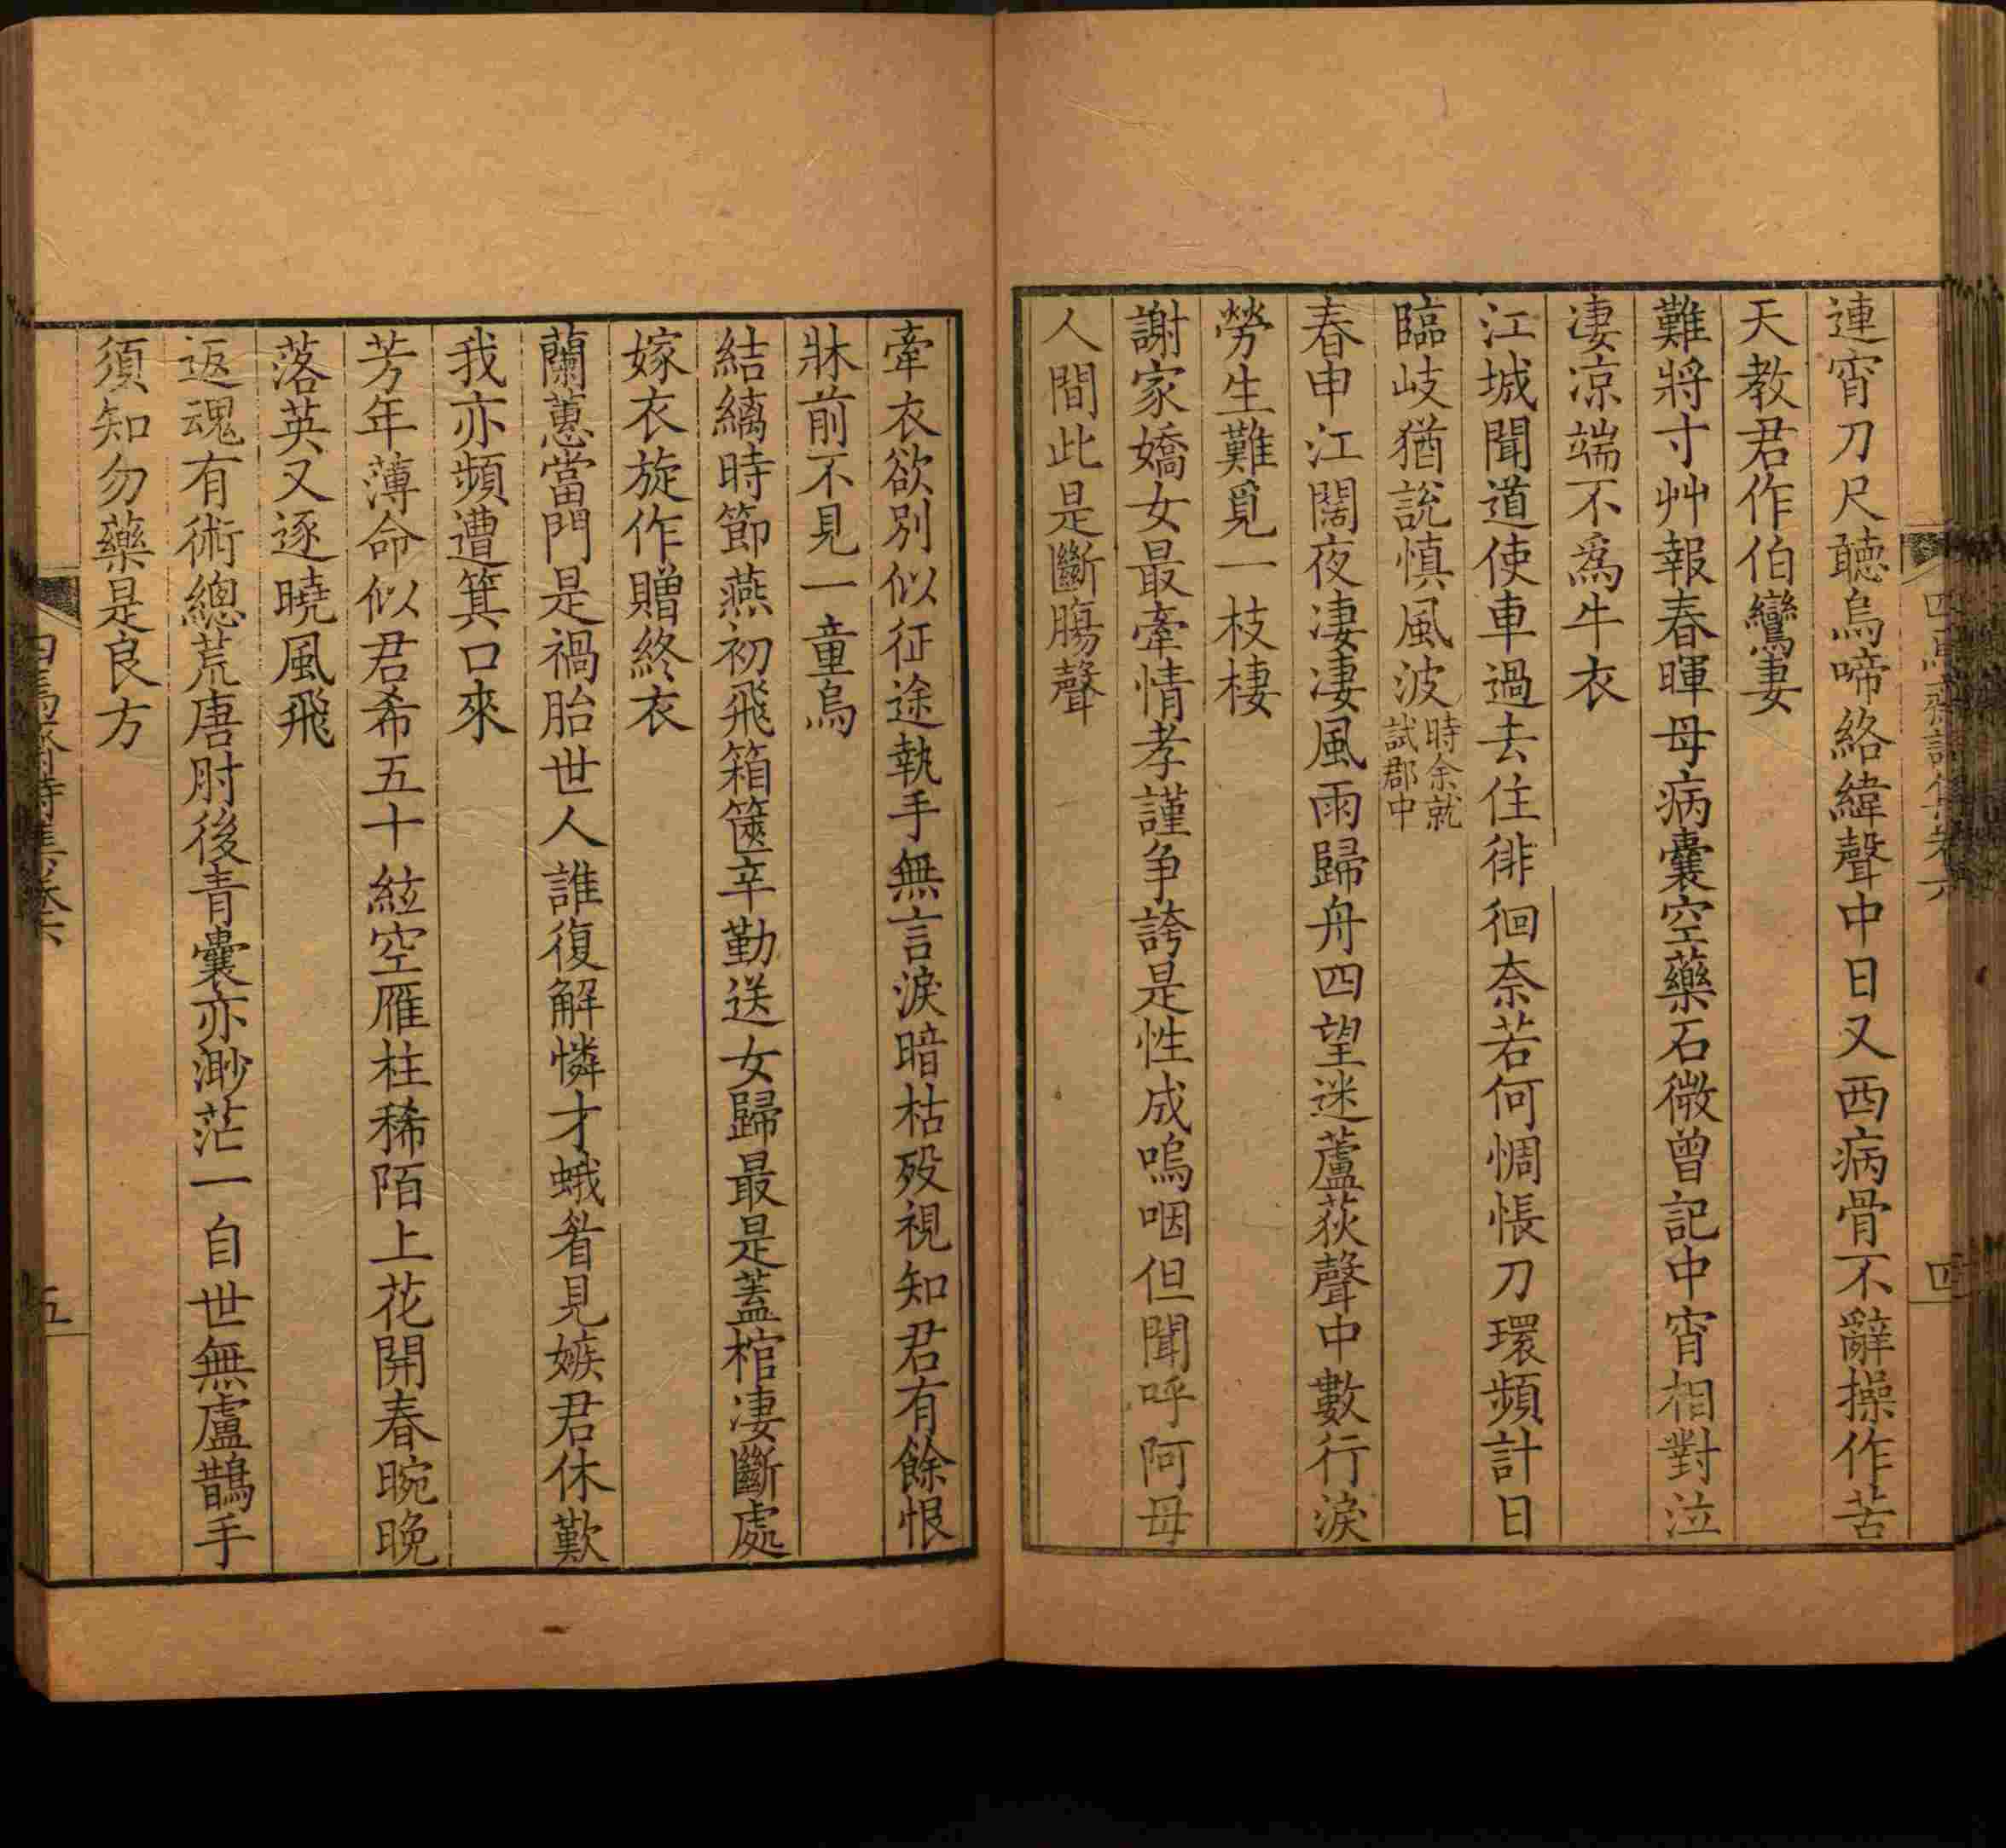 連宵刀尺聽烏啼絡緯聲中日又西病骨不辭操作苦
天教君作伯鸞妻
難將寸艸報春暉母病囊空藥石微曾記中宵相對泣
淒涼端不爲牛衣
江城聞道使車過去住徘徊奈若何惆悵刀環頻計日
臨歧猶說慎風波時余就試郡中
春申江闊夜淒淒風雨歸舟四望迷蘆荻聲中數行淚
勞生難覓一枝棲
謝家嬌女最牽情孝謹争誇是性成嗚咽但聞呼阿母
人間此是斷腸聲
四
牽衣欲別似征途執手無言淚暗枯歿視知君有餘恨
牀前不見一童烏
結縭時節燕初飛箱篋辛勤送女歸最是蓋棺淒斷處
嫁衣旋作贈終衣
蘭蕙當門是禍胎世人誰復解憐才蛾眉見嫉君休歎
我亦頻遭箕口來
芳年薄命似君希五十絃空雁柱稀陌上花開春晼晚
落英又逐曉風飛
返魂有術總荒唐肘後青囊亦渺茫一自世無盧鵲手
須知勿藥是良方
五